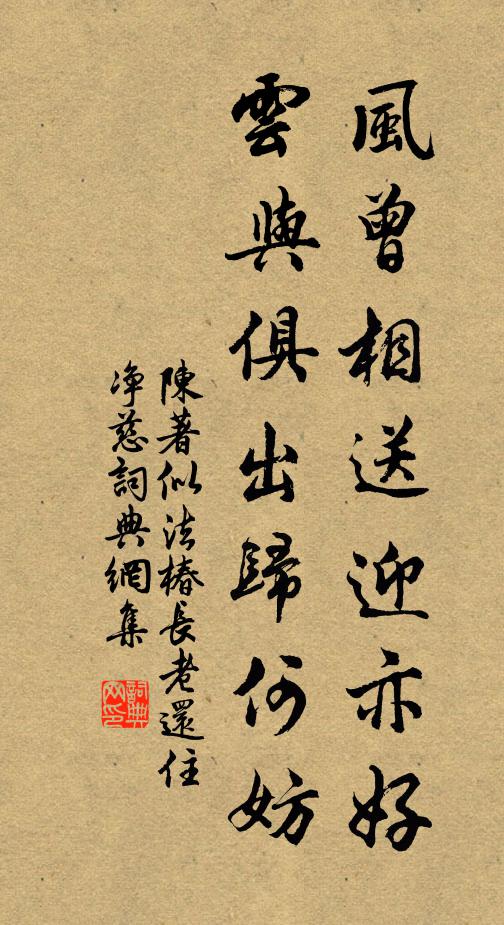 風曾相送迎亦好
雲與俱出歸何妨
陳著似法椿長老還住
净慈詞典網集
詞典网印